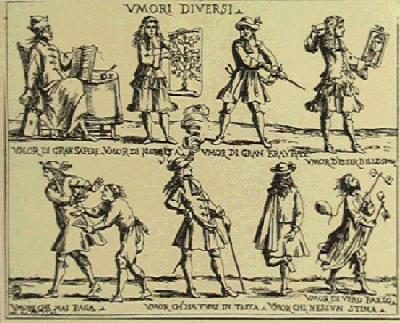 VMORI DIVERSI
VMOR DI GRAN SAPERE
VMOR DI NOBILTA
VMOR DI GRAN BRAVURE
VMOR D'ESSER BELLISSIMO
VMOR CHE MAI PAGA
VMOR CH'HA FUMI IN TESTA
VMOR CHE NESSVN STIMA
VMOR DI VERO PAZZO